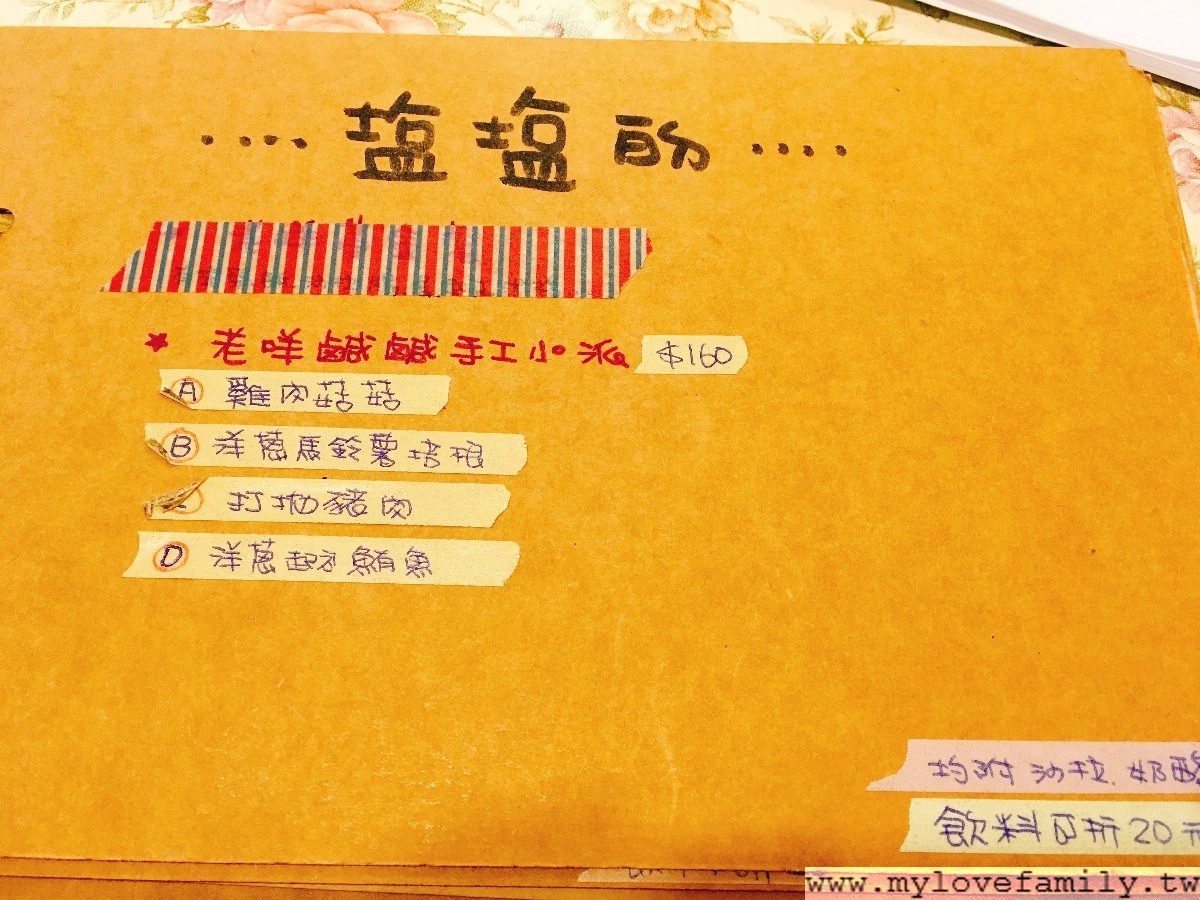 ....塩塩的....
* 老咩鹹鹹手工小派 $160
A 雞肉菇菇
B 洋蔥馬鈴薯培根
打拋豬肉
D 洋蔥起司鮪魚
均附沙拉.奶酪
飲料可折20元
www.mylovefamily.tw